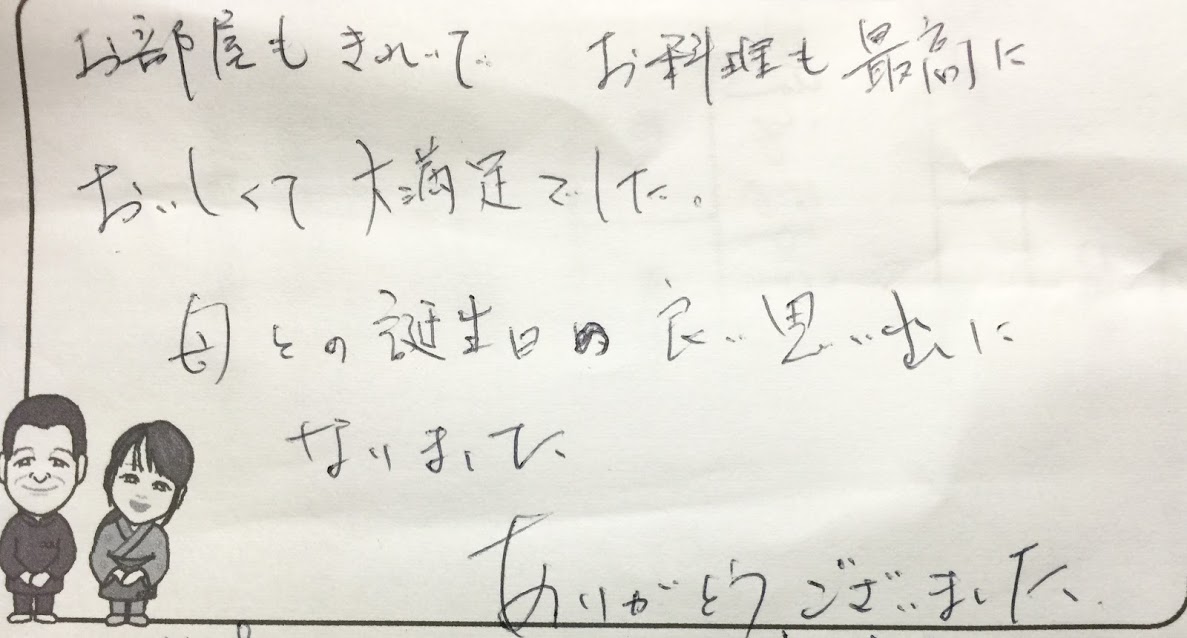 お部屋もきれいで お料理も最高に
おいしくて大満足でした。
母との誕生日の良い思い出に
なりました
ありがとうございました。